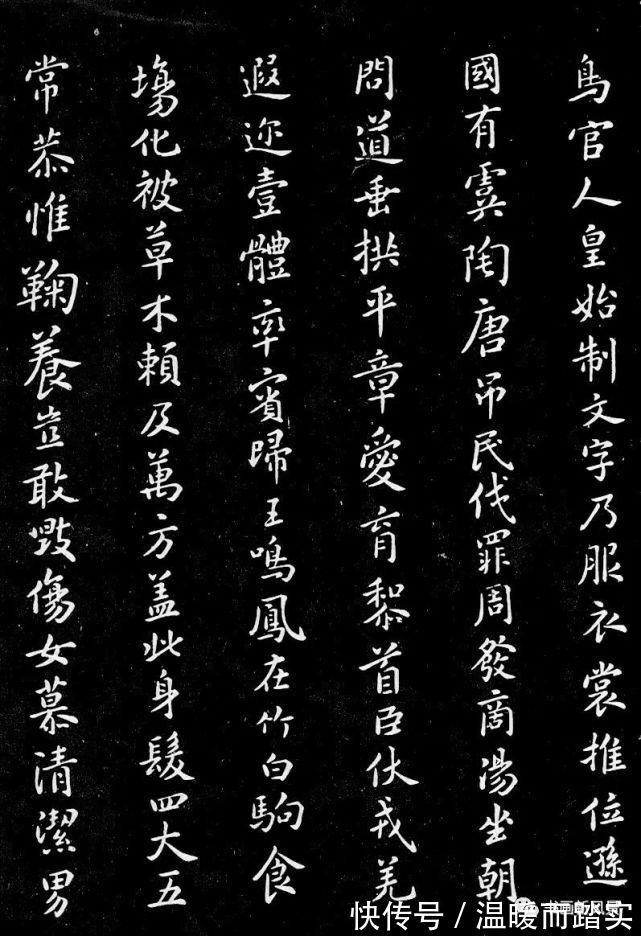 鳥官人皇始制文字乃服衣裳推位遜
國有虞陶唐吊民伐罪周發商湯坐朝
問道垂拱平章愛育黎首臣伏戎羌
遐迩壹體率賓歸王鳴鳳在竹白駒食
場化被草木賴及萬方盖此身髮四大五
常恭惟鞠養豈敢毀傷女慕清潔男
快传号 / 温暖而踏实